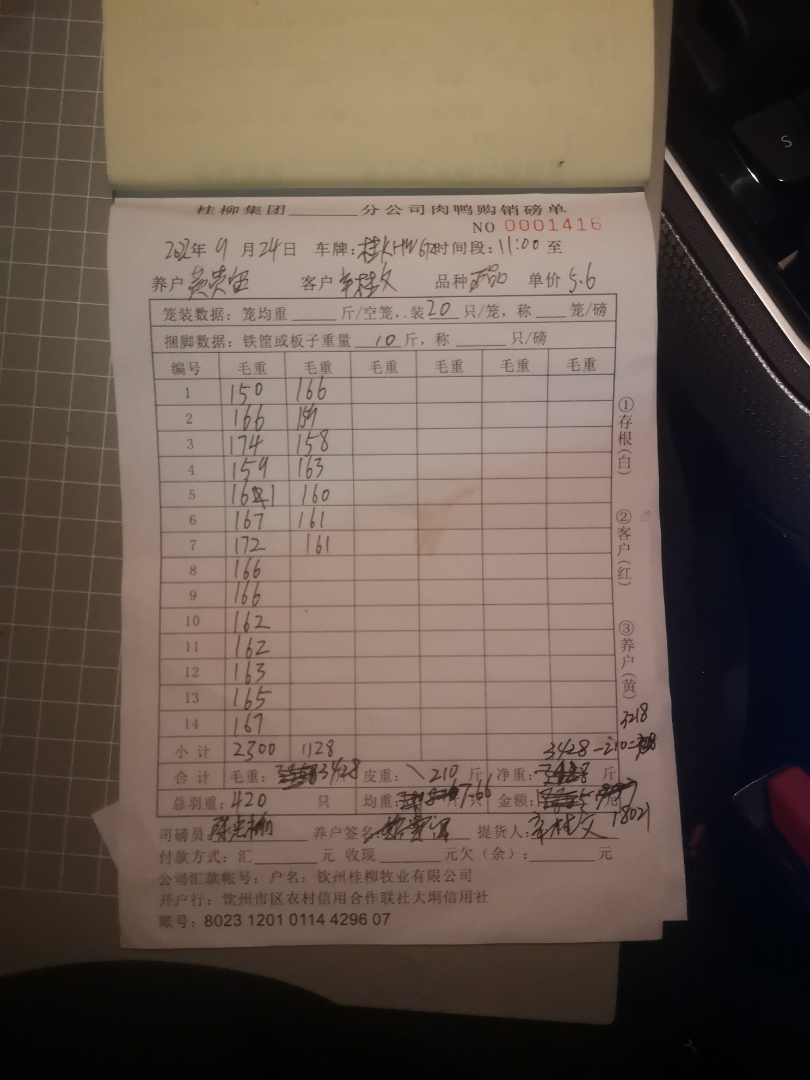 桂柳集团______分公司肉鸭购销磅单
NO 0001416
2022年 9月24日 车牌:桂KHW 时间段:11:00至
养户 黄贵 客户 辛桂文 品种 正品 单价 5.6
笼装数据:笼均重______斤/空笼,装20只/笼,称___笼/磅
捆脚数据:铁筐或板子重量 10 斤,称______只/磅
编号 毛重 毛重 毛重 毛重 毛重 毛重
1 150 166
2 166 159
3 174 158
4 159 163
5 161 160
6 167 161
7 172 161
8 166
9 166
10 162
11 162
12 163
13 165
14 167
小计 2300 1128 3428-210=
3218
合计 毛重: 3428 皮重: 210斤 净重: 斤
总羽重:420 只 均重: 7.66 金额: 元
18021
司磅员 养户签名 提货人:辛桂文
付款方式:汇______元 收现______元欠(余):______元
公司汇款帐号:户名:钦州桂柳牧业有限公司
开户行:钦州市区农村信用合作联社大垌信用社
账号:8023 1201 0114 4296 07
①存根(白)
②客户(红)
③养户(黄)
S